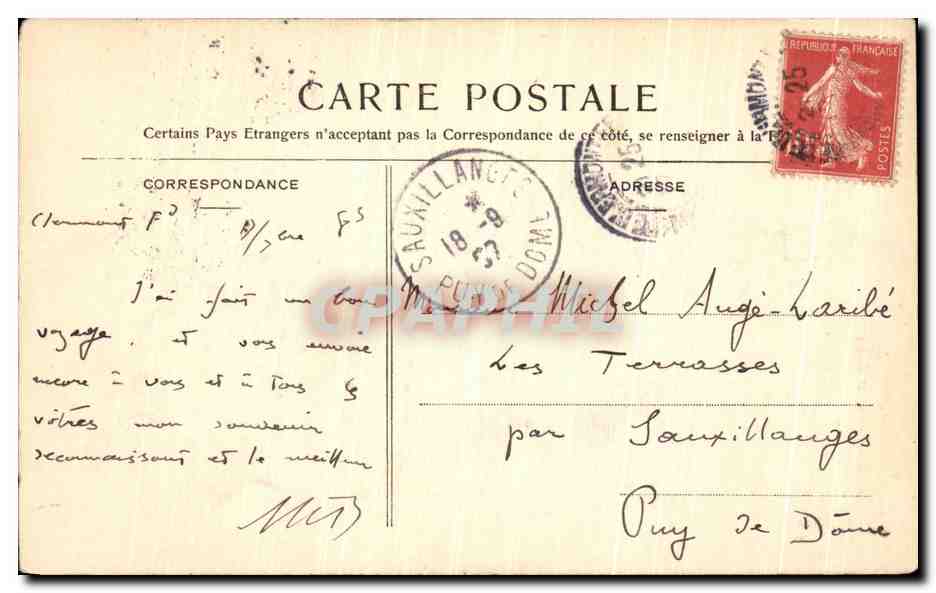 REPUBLIQUE FRANÇAISE
POSTES
CARTE POSTALE
Certains Pays Etrangers n'acceptant pas la Correspondance de ce côté, se renseigner à la
CORRESPONDANCE
Clermont Fd
J'ai fait un bon
voyage, et vous envoie
encore à vous et à tous les
vôtres mon souvenir
reconnaissant et le meilleur
SAUXILLANGES
18 -9
07
PUY DE DOME
25
ADRESSE
Monsieur Michel Augé-Laribé
Les Terrasses
par Sauxillanges
Puy de Dôme
CPAPHIL